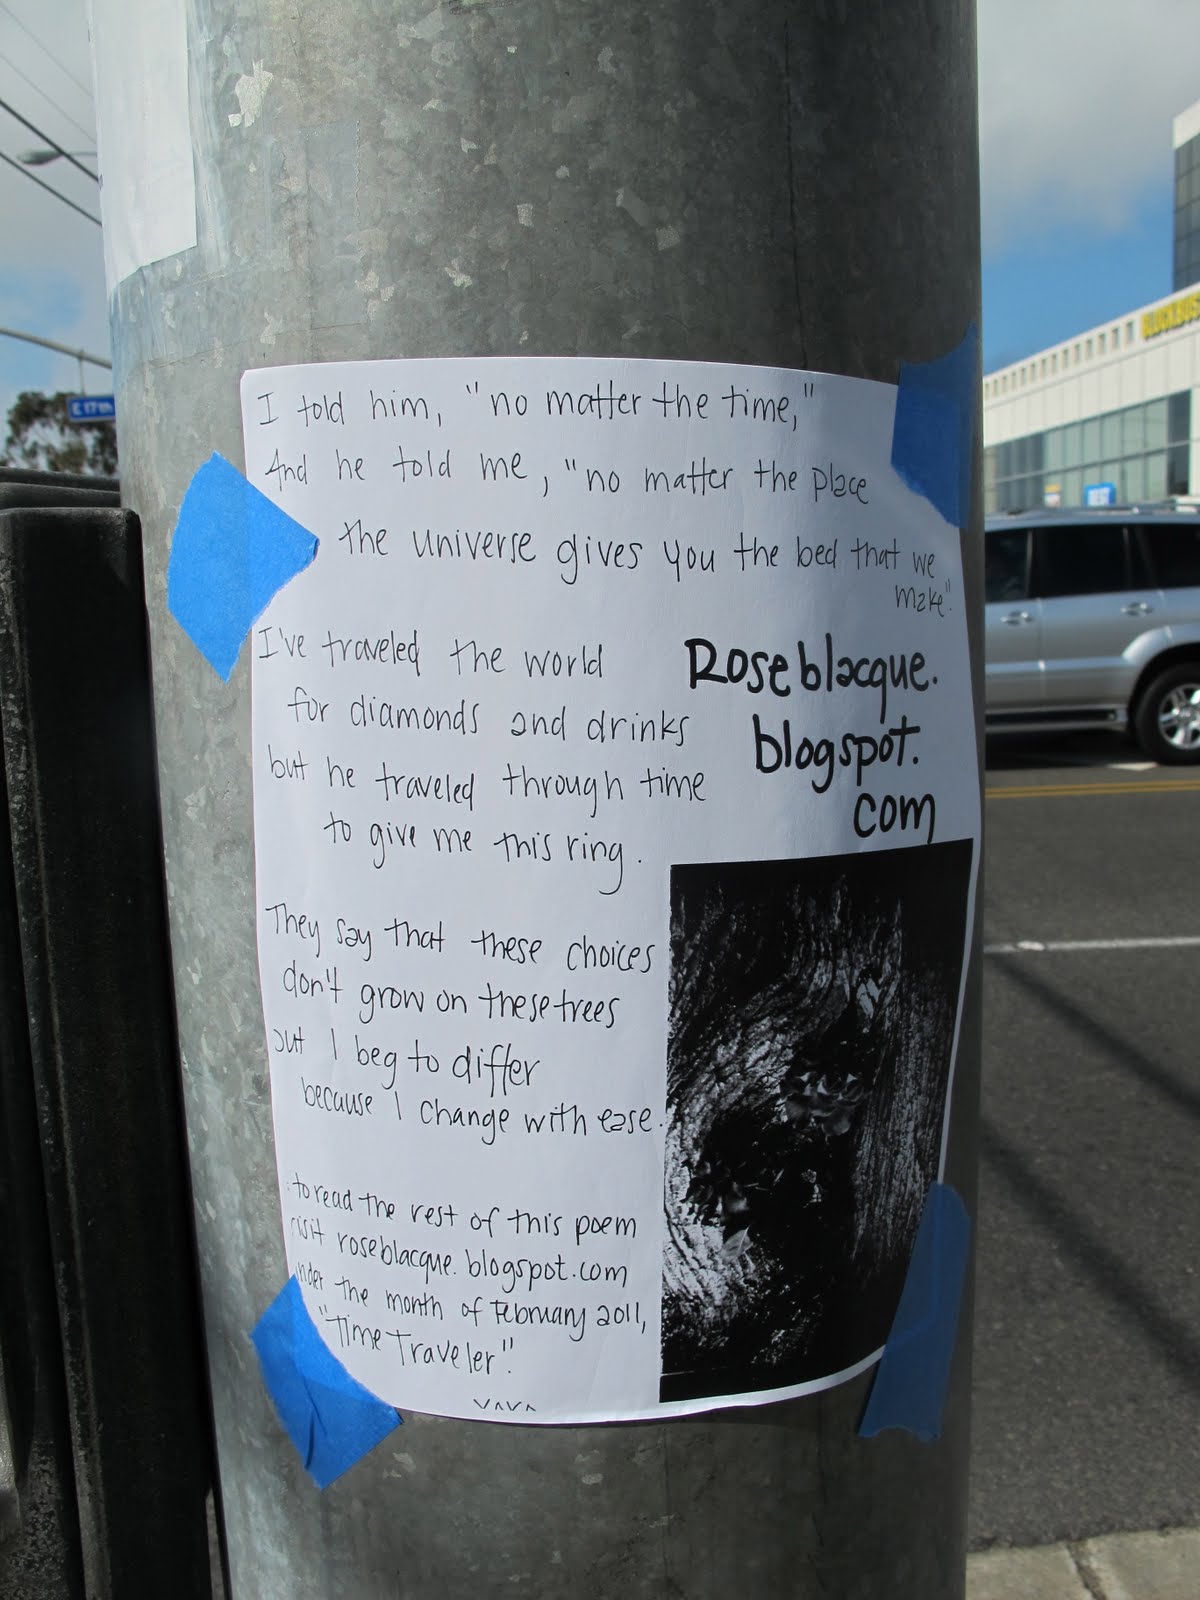 I told him, "no matter the time,"
And he told me, "no matter the place
the universe gives you the bed that we
make".
I've traveled the world
for diamonds and drinks
but he traveled through time
to give me this ring.
They say that these choices
don't grow on these trees
but I beg to differ
because I change with ease.
Roseblacque.
blogspot.
com
to read the rest of this poem
visit roseblacque.blogspot.com
under the month of February 2011,
"Time Traveler".
E 17th
BLOCKBUS